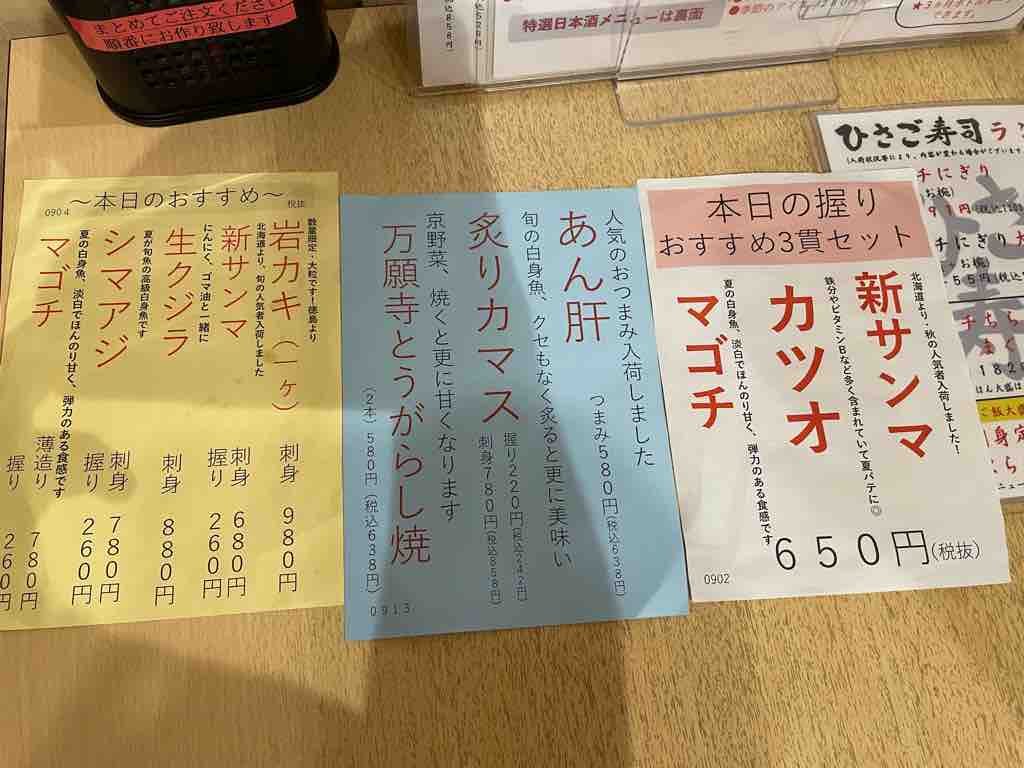 まとめてご注文ください
順番にお作り致します
特選日本酒メニューは裏面
～本日のおすすめ～
税抜
0904
数量限定・大粒です！徳島より
岩カキ（一ヶ）
刺身 980円
北海道より、旬の人気者入荷しました
新サンマ
刺身 680円
握り 260円
にんにく、ゴマ油と一緒に
生クジラ
刺身 880円
夏が旬魚の高級白身魚です
シマアジ
刺身 780円
握り 260円
夏の白身魚、淡白でほんのり甘く、弾力のある食感です
マゴチ
薄造り 780円
握り 260円
人気のおつまみ入荷しました
あん肝
つまみ580円(税込638円)
旬の白身魚、クセもなく炙ると更に美味い
炙りカマス
握り220円(税込242円)
刺身780円(税込858円)
京野菜、焼くと更に甘くなります
万願寺とうがらし焼
(2本)580円(税込638円)
0913
本日の握り
おすすめ3貫セット
北海道より・秋の人気者入荷しました！
新サンマ
鉄分やビタミンBなど多く含まれていて夏バテに◎
カツオ
夏の白身魚、淡白でほんのり甘く、弾力のある食感です
マゴチ
650円(税抜)
0902
ひさご寿司